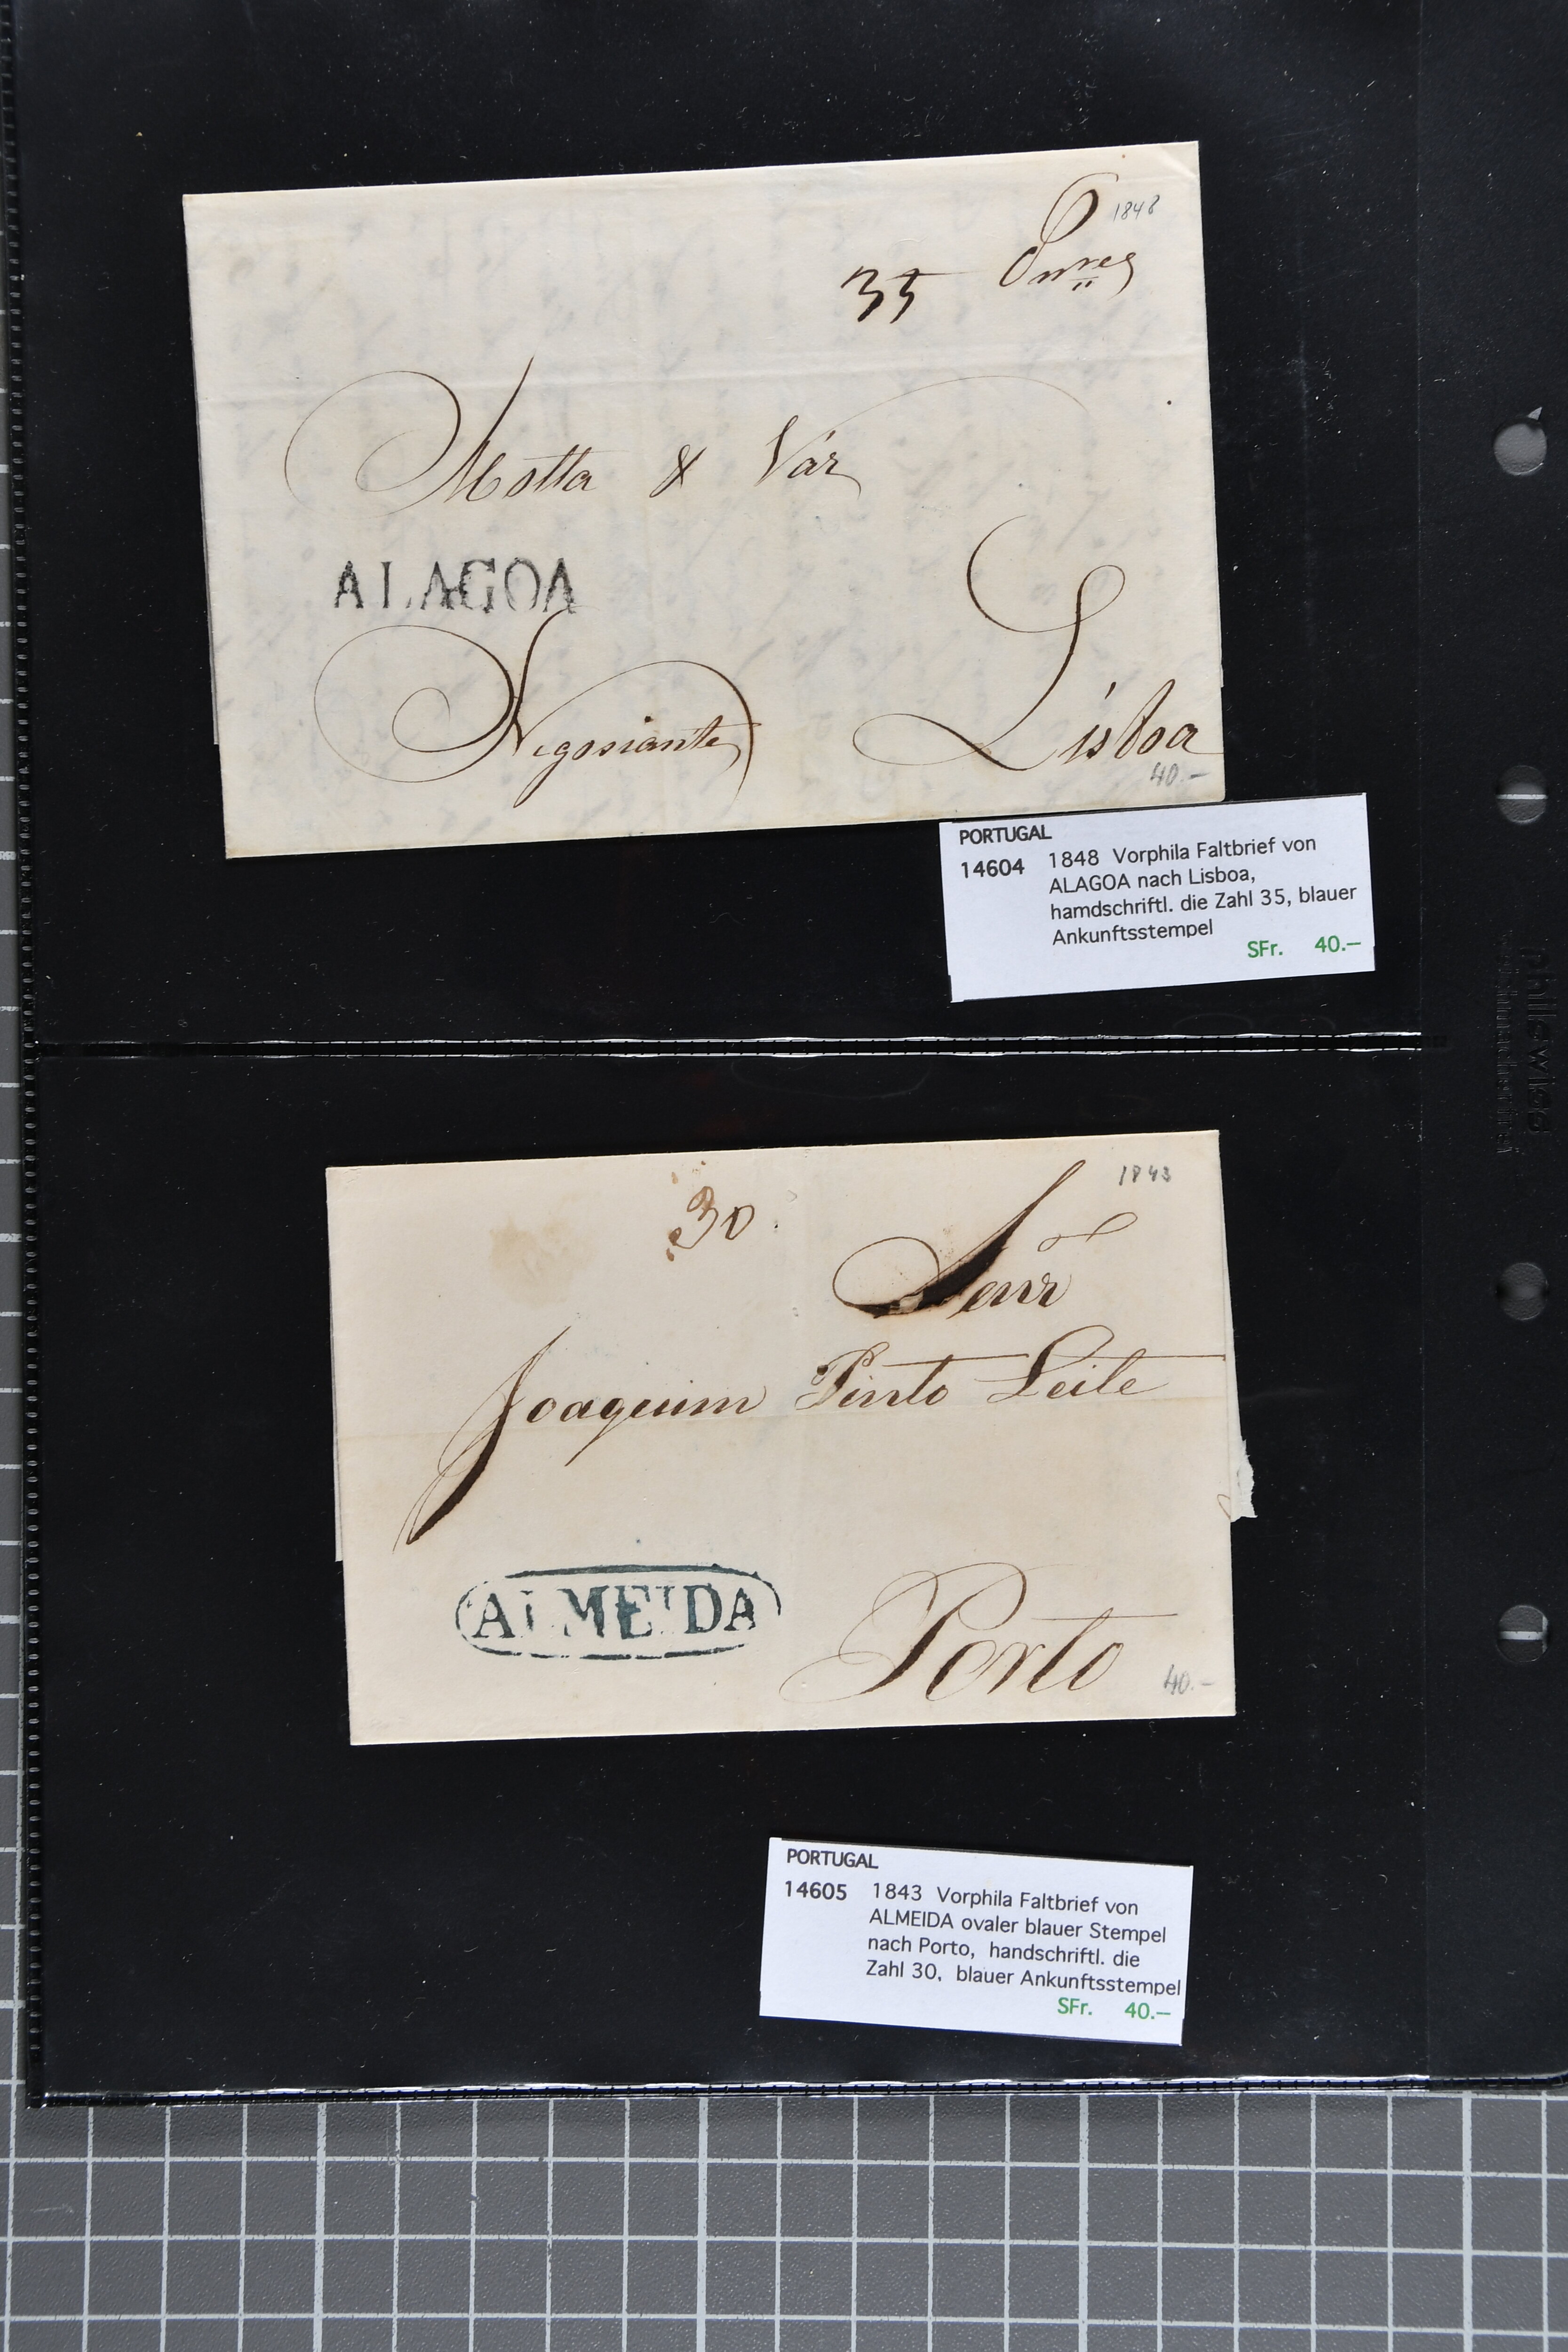 1848
35
Motta & Váz
ALAGOA
Negosiante
Lisboa
40.-
PORTUGAL
14604 1848 Vorphila Faltbrief von
ALAGOA nach Lisboa,
hamdschriftl. die Zahl 35, blauer
Ankunftsstempel
SFr. 40.—
philswiss
1843
30
Senr
Joaquim Pinto Leite
ALMEIDA
Porto
40.-
PORTUGAL
14605 1843 Vorphila Faltbrief von
ALMEIDA ovaler blauer Stempel
nach Porto, handschriftl. die
Zahl 30, blauer Ankunftsstempel
SFr. 40.—